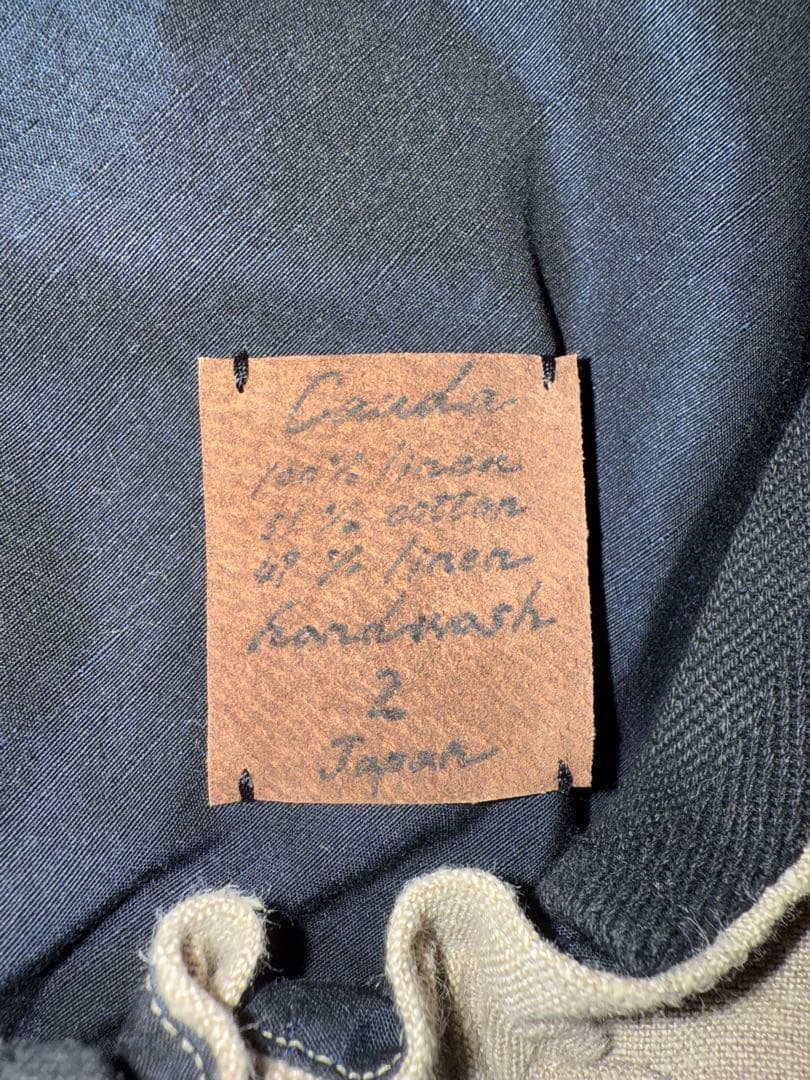 Cauda
100% linen
51 % cotton
49 % linen
handwash
2
Japan